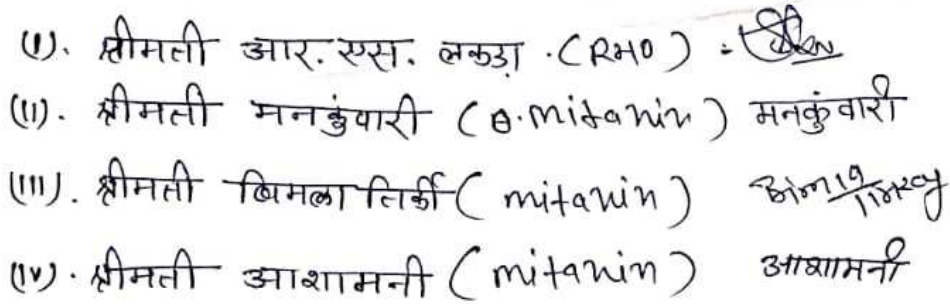 (I). श्रीमती आर. एस. लकड़ा . (RHO) :-
(II). श्रीमती मनकुंवारी (B. mitanin) मनकुंवारी
(III). श्रीमती बिमला तिर्की (mitanin) Bimla Tirkey
(IV). श्रीमती आशामनी (mitanin) आशामनी